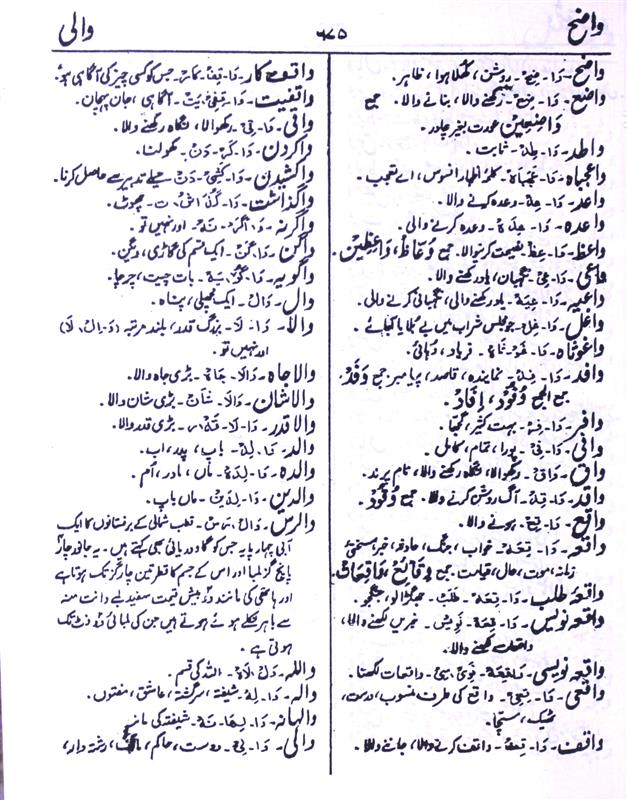 واضح
۶۸۵
والی
واضح - وَا - ضِحْ - روشن، کُھلا ہوا، ظاہر۔
واضع - وَا - ضِعْ - رکھنے والا، بنانے والا۔ جمع
وَاضِعِیْن عورت بغیر چادر۔
واطد - وَا - طِدْ - ثابت۔
واعجباہ - وَا - عَجَبَاہْ - کلمۂ اظہار افسوس، اے تعجب۔
واعد - وَا - عِدْ - وعدہ کرنے والا۔
واعدہ - وَا - عِدَہْ - وعدہ کرنے والی۔
واعظ - وَا - عِظْ - نصیحت کرنیوالا۔ جمع وُعَّاظْ، وَاعِظِیْن۔
واعی - وَا - عِیْ - نگہبان، یاد رکھنے والا۔
واعیہ - وَا - عِیَہْ - یاد رکھنے والی، نگہبانی کرنے والی۔
واغل - وَا - غِلْ - جو مجلس شراب میں بے بلایا آجائے۔
واغوثاہ - وَا - غَوْ - ثَاہْ - فریاد، دہائی۔
وافد - وَا - فِدْ - نمایندہ، قاصد، پیامبر جمع وَفْد،
جمع الجمع وُفُوْد، اِفَاد۔
وافر - وَا - فِرْ - بہت کثیر، گھنا۔
وافی - وَا - فِیْ - پورا، تمام، کامل۔
واق - وَاقْ - رکھوالا، نگاہ رکھنے والا، نام پرند۔
واقد - وَا - قِدْ - آگ روشن کرنے والا۔ جمع وُقُوْد۔
واقع - وَا - قِعْ - ہونے والا۔
واقعہ - وَا - قِعَہْ - خواب، جنگ، حادثہ، خبر، سختیٔ
زمانہ، موت، حال، قیامت۔ جمع وَقَائِعْ، وَاقِعَات۔
واقعہ طلب - وَا - قِعَہْ - طَلَبْ - جھگڑالو، جنگجو۔
واقعہ نویس - وَا - قِعَہْ - نَوِیْسْ - خبریں لکھنے والا،
واقعات لکھنے والا۔
واقعہ نویسی - وَاقِعَہْ - نَوِیْ - سِیْ - واقعات لکھنا۔
واقعی - وَا - قِعِیْ - واقع کی طرف منسوب، درست،
ٹھیک، سچا۔
واقف - وَا - قِفْ - واقف کرنے والا، جاننے والا۔
واقف کار - وَا - قِفْ - کَارْ - جس کو کسی چیز کی آگاہی ہو۔
واقفیت - وَا - قِفِیْ - یَتْ - آگاہی، جان پہچان۔
واقی - وَا - قِیْ - رکھوالا، نگاہ رکھنے والا۔
واکردن - وَا - کَرْ - دَنْ - کھولنا۔
واکشیدن - وَا - کَشِیْ - دَنْ - حیلے تدبیر سے حاصل کرنا۔
واگذاشت - وَا - گُذَاشْ - ت - چھوٹ۔
واگرنہ - وَ - اَگَرْ - نَہْ - اور نہیں تو۔
واگن - وَا - گَنْ - ایک قسم کی گاڑی، ویگن۔
واگویہ - وَا - گُوْ - یَہْ - بات چیت، چرچا۔
وال - وَالْ - ایک مچھلی، پناہ۔
والا - وَا - لَا - بزرگ قدر، بلند مرتبہ (وَ - اِلْ - لَا)
اور نہیں تو۔
والا جاہ - وَالَا - جَاہْ - بڑی جاہ والا۔
والا شان - وَالَا - شَانْ - بڑی شان والا۔
والا قدر - وَا - لَا - قَدْر - بڑی قدر والا۔
والد - وَا - لِدْ - باپ، پدر، اب۔
والدہ - وَا - لِدَہْ - ماں، مادر، اُم۔
والدین - وَا - لِدَیْنْ - ماں باپ۔
والرس - وَالْ - رَسْ - قطب شمالی کے برفستانوں کا ایک
آبی چوپایہ جس کو گاؤ دریائی بھی کہتے ہیں۔ یہ جانور چار
پانچ گز لمبا اور اس کے جسم کا قطر تین چار گز تک ہوتا ہے
اور ہاتھی کی مانند دو بیش قیمت سفید لمبے دانت منہ
سے باہر نکلے ہوئے ہوتے ہیں جن کی لمبائی دو فٹ تک
ہوتی ہے۔
واللہ - وَلْ - لَاہْ - اللہ کی قسم۔
والہ - وَا - لِہْ - شیفتہ، سرگشتہ، عاشق، مفتون۔
والہانہ - وَا - لِہَا - نَہْ - شیفتہ کی مانند۔
والی - وَا - لِیْ - دوست، حاکم، مالک، رشتہ دار،